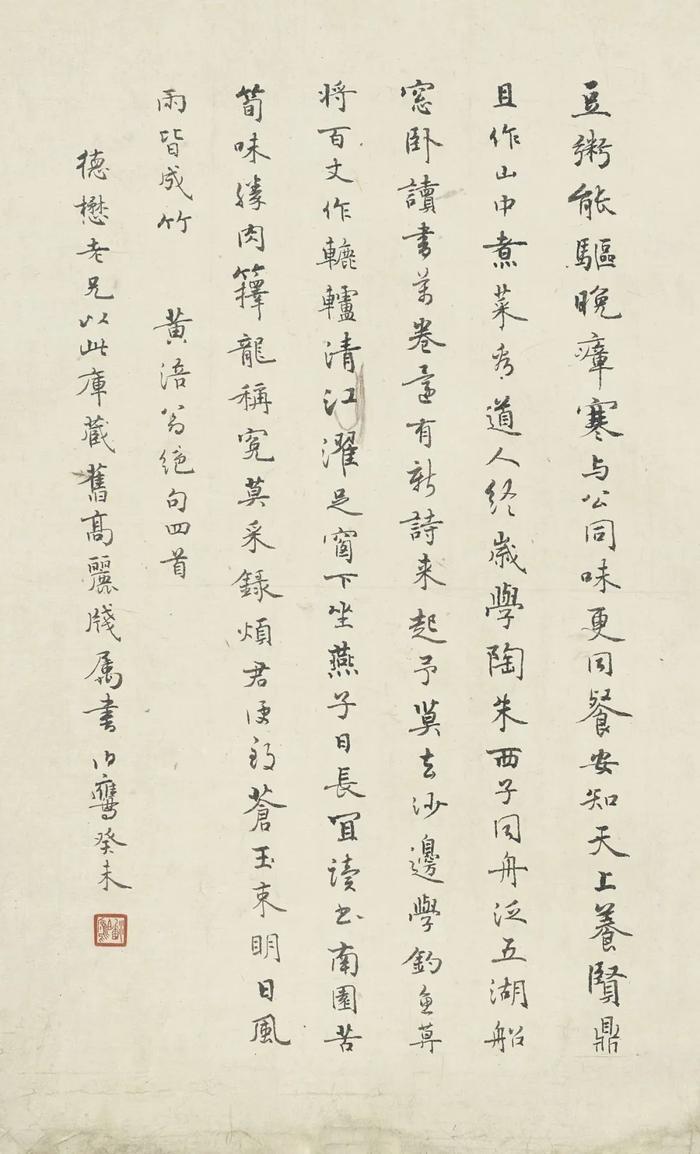 豆粥能驅晚瘴寒与公同味更同餐安知天上養賢鼎
且作山中煮菜看道人終歲學陶朱西子同舟泛五湖船
窓卧讀書萬卷還有新詩来起予莫去沙邊學釣魚莫
将百丈作轆轤清江濯足窗下坐燕子日長宜讀书南園苦
筍味勝肉籜龍稱冤莫采錄煩君便致蒼玉束明日風
雨皆成竹 黄涪翁絶句四首
德懋老兄以此庫藏舊高麗牋属書 伯鷹癸未